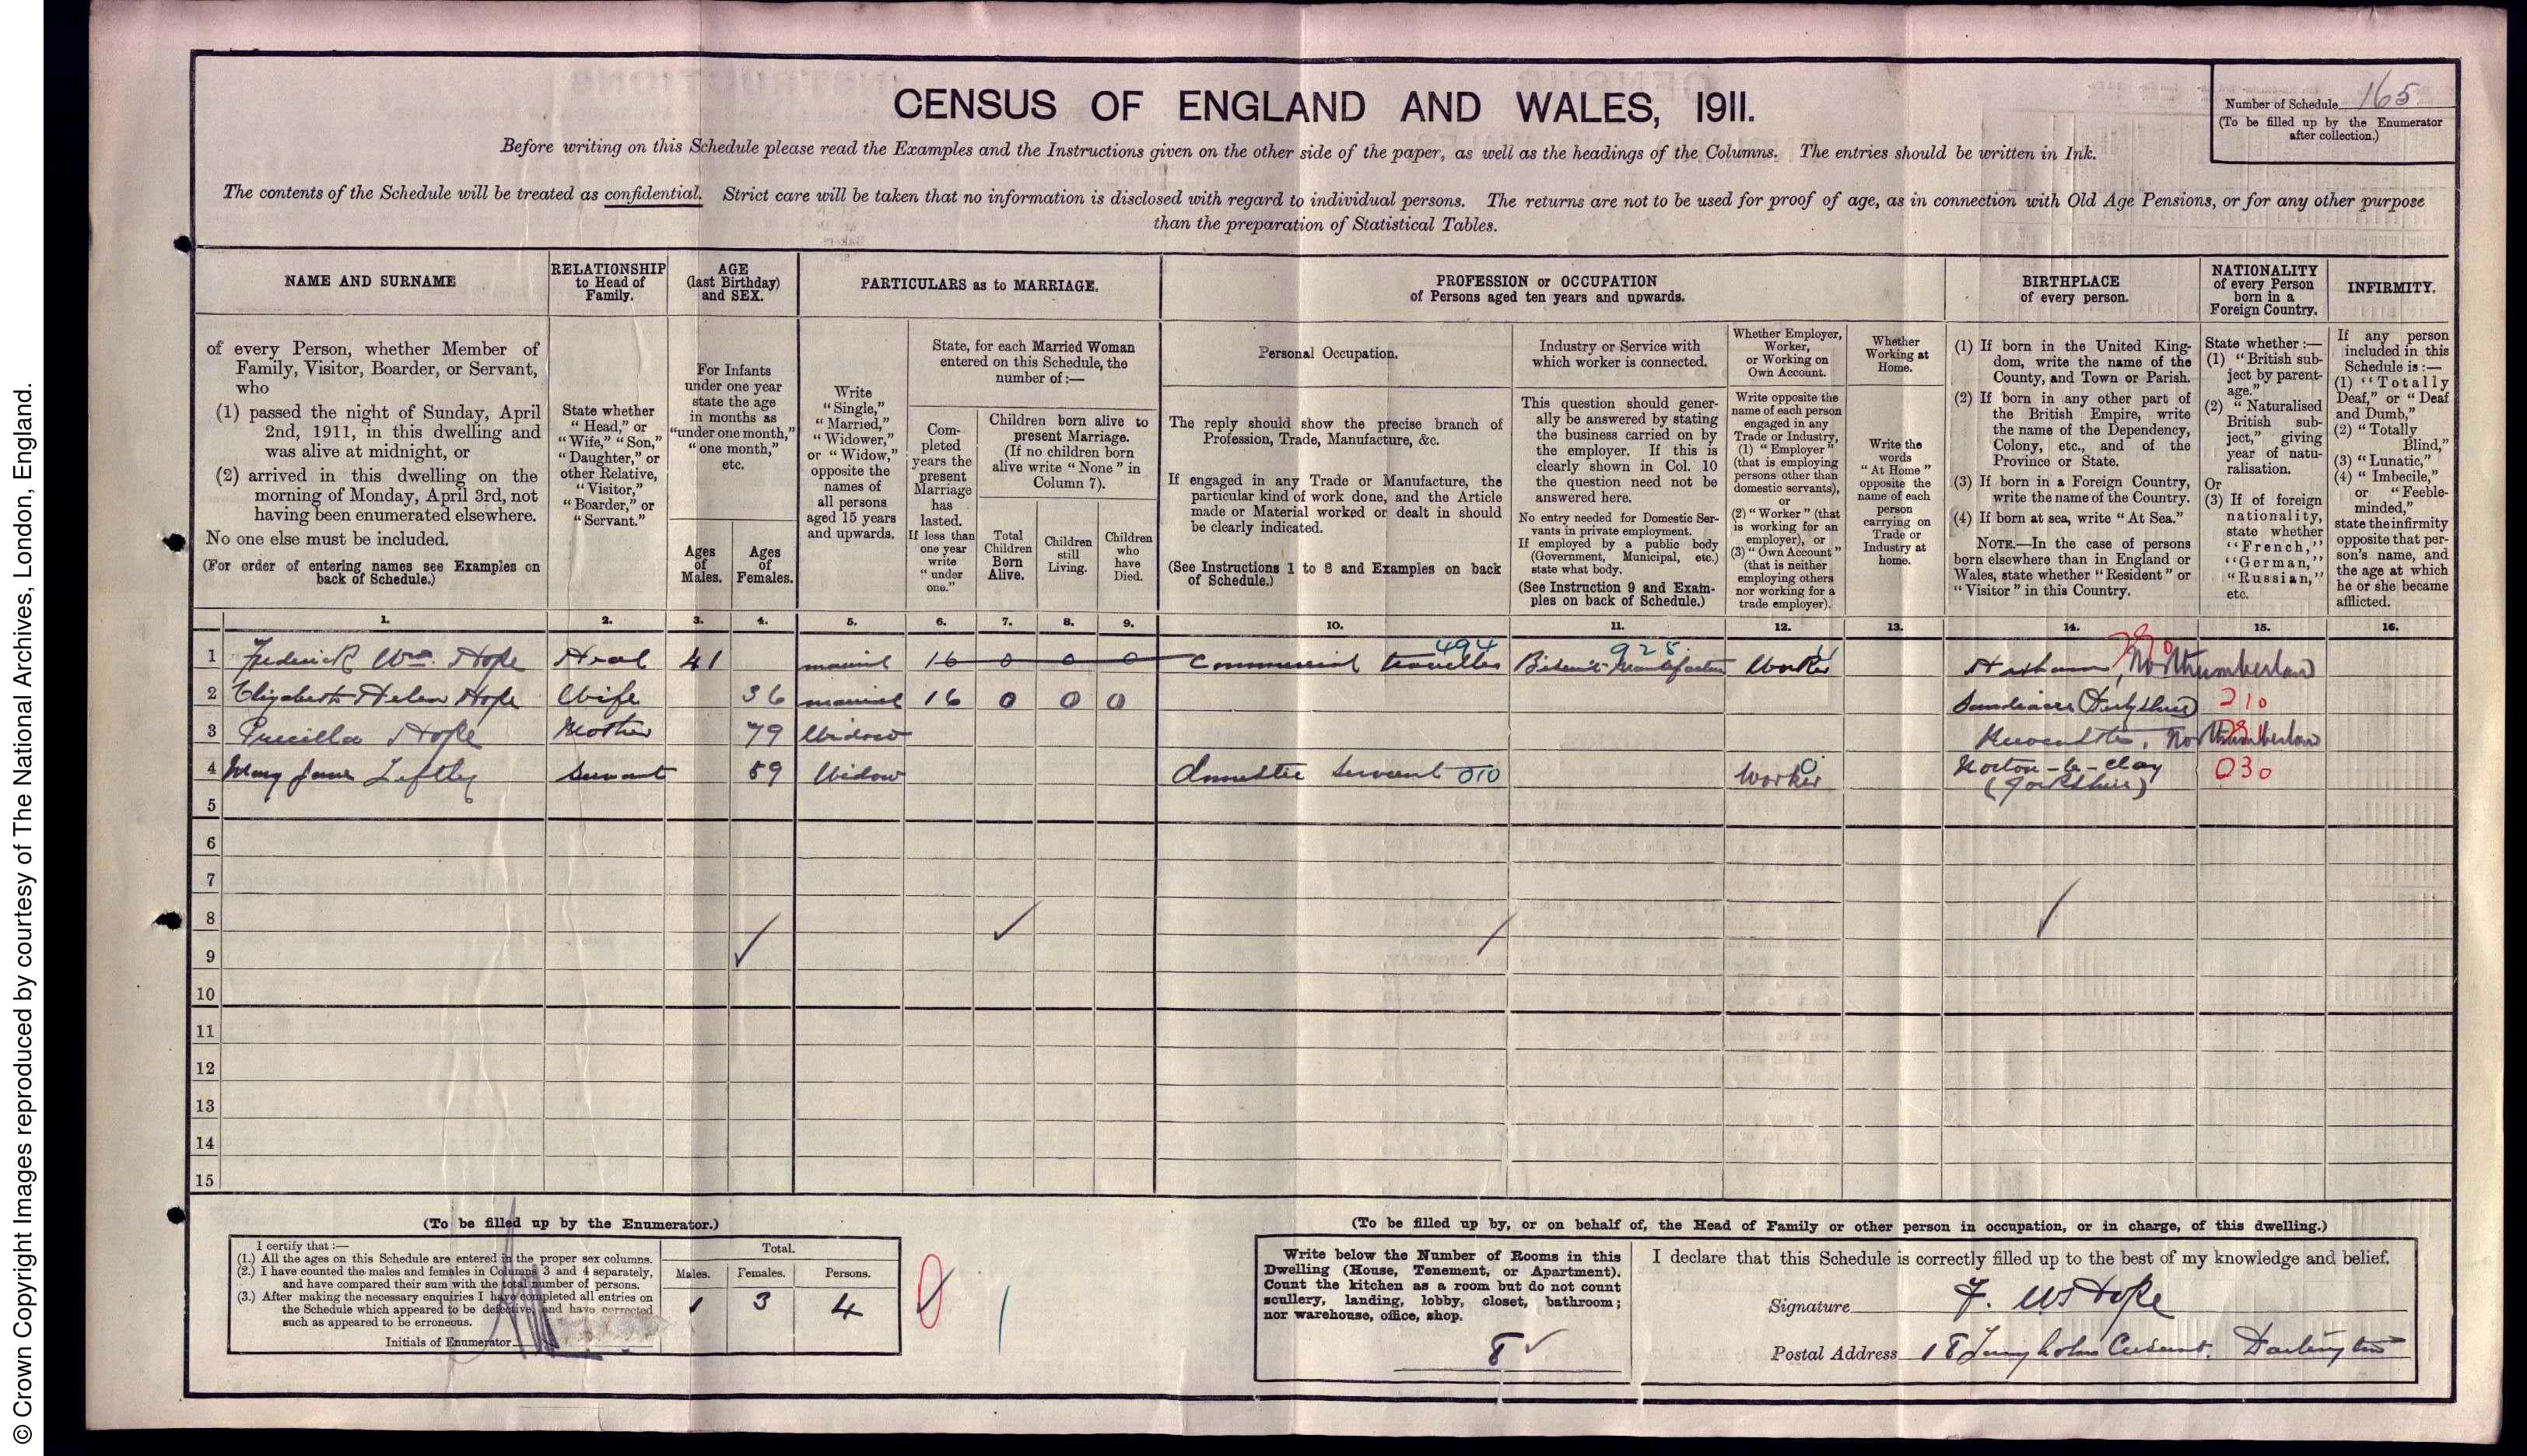 © Crown Copyright Images reproduced by courtesy of The National Archives, London, England.
CENSUS OF ENGLAND AND WALES, 1911.
Number of Schedule 165
(To be filled up by the Enumerator after collection.)
Before writing on this Schedule please read the Examples and the Instructions given on the other side of the paper, as well as the headings of the Columns. The entries should be written in Ink.
The contents of the Schedule will be treated as confidential. Strict care will be taken that no information is disclosed with regard to individual persons. The returns are not to be used for proof of age, as in connection with Old Age Pensions, or for any other purpose
than the preparation of Statistical Tables.
NAME AND SURNAME
of every Person, whether Member of
Family, Visitor, Boarder, or Servant,
who
(1) passed the night of Sunday, April
2nd, 1911, in this dwelling and
was alive at midnight, or
(2) arrived in this dwelling on the
morning of Monday, April 3rd, not
having been enumerated elsewhere.
No one else must be included.
(For order of entering names see Examples on
back of Schedule.)
RELATIONSHIP
to Head of
Family.
State whether
"Head," or
"Wife," "Son,"
"Daughter," or
other Relative,
"Visitor,"
"Boarder," or
"Servant."
AGE
(last Birthday)
and SEX.
For Infants
under one year
state the age
in months as
"under one month,"
"one month,"
etc.
Ages
of
Males.
Ages
of
Females.
PARTICULARS as to MARRIAGE.
Write
"Single,"
"Married,"
"Widower,"
or "Widow,"
opposite the
names of
all persons
aged 15 years
and upwards.
State, for each Married Woman
entered on this Schedule, the
number of:—
Com-
pleted
years the
present
Marriage
has
lasted.
If less than
one year
write
"under
one."
Children born alive to
present Marriage.
(If no children born
alive write "None" in
Column 7).
Total
Children
Born
Alive.
Children
still
Living.
Children
who
have
Died.
PROFESSION or OCCUPATION
of Persons aged ten years and upwards.
Personal Occupation.
The reply should show the precise branch of
Profession, Trade, Manufacture, &c.
If engaged in any Trade or Manufacture, the
particular kind of work done, and the Article
made or Material worked or dealt in should
be clearly indicated.
(See Instructions 1 to 8 and Examples on back
of Schedule.)
Industry or Service with
which worker is connected.
This question should gener-
ally be answered by stating
the business carried on by
the employer. If this is
clearly shown in Col. 10
the question need not be
answered here.
No entry needed for Domestic Ser-
vants in private employment.
If employed by a public body
(Government, Municipal, etc.)
state what body.
(See Instruction 9 and Exam-
ples on back of Schedule.)
Whether Employer,
Worker,
or Working on
Own Account.
Write opposite the
name of each person
engaged in any
Trade or Industry,
(1) "Employer"
(that is employing
persons other than
domestic servants),
or
(2) "Worker" (that
is working for an
employer), or
(3) "Own Account"
(that is neither
employing others
nor working for a
trade employer).
Whether
Working at
Home.
Write the
words
"At Home"
opposite the
name of each
person
carrying on
Trade or
Industry at
home.
BIRTHPLACE
of every person.
(1) If born in the United King-
dom, write the name of the
County, and Town or Parish.
(2) If born in any other part of
the British Empire, write
the name of the Dependency,
Colony, etc., and of the
Province or State.
(3) If born in a Foreign Country,
write the name of the Country.
(4) If born at sea, write "At Sea."
NOTE.—In the case of persons
born elsewhere than in England or
Wales, state whether "Resident" or
"Visitor" in this Country.
NATIONALITY
of every Person
born in a
Foreign Country.
State whether:—
(1) "British sub-
ject by parent-
age."
(2) "Naturalised
British sub-
ject," giving
year of natu-
ralisation.
Or
(3) If of foreign
nationality,
state whether
"French,"
"German,"
"Russian,"
etc.
INFIRMITY.
If any person
included in this
Schedule is:—
(1) "Totally
Deaf," or "Deaf
and Dumb,"
(2) "Totally
Blind,"
(3) "Lunatic,"
(4) "Imbecile,"
or "Feeble-
minded,"
state the infirmity
opposite that per-
son's name, and
the age at which
he or she became
afflicted.
1. 2. 3. 4. 5. 6. 7. 8. 9. 10. 11. 12. 13. 14. 15. 16.
1 Frederick Wm. Hope Head 41 married 16 0 0 0 Commercial traveller 494 Biscuit Manufacture 925 Worker Hexham, Northumberland
2 Elizabeth Helen Hope Wife 36 married 16 0 0 0 Sandiacre (Derbyshire) 210
3 Priscilla Hope Mother 79 Widow Newcastle, Northumberland
4 Mary Jane Leftley Servant 59 Widow Domestic Servant 010 Worker 0 Norton-le-Clay (Yorkshire) 030
5
6
7
8
9
10
11
12
13
14
15
(To be filled up by the Enumerator.)
I certify that:—
(1.) All the ages on this Schedule are entered in the proper sex columns.
(2.) I have counted the males and females in Columns 3 and 4 separately,
and have compared their sum with the total number of persons.
(3.) After making the necessary enquiries I have completed all entries on
the Schedule which appeared to be defective, and have corrected
such as appeared to be erroneous.
Initials of Enumerator
Total.
Males. Females. Persons.
1 3 4
(To be filled up by, or on behalf of, the Head of Family or other person in occupation, or in charge, of this dwelling.)
Write below the Number of Rooms in this
Dwelling (House, Tenement, or Apartment).
Count the kitchen as a room but do not count
scullery, landing, lobby, closet, bathroom;
nor warehouse, office, shop.
8
I declare that this Schedule is correctly filled up to the best of my knowledge and belief.
Signature F. W Hope
Postal Address 18 Langholm Crescent. Darlington